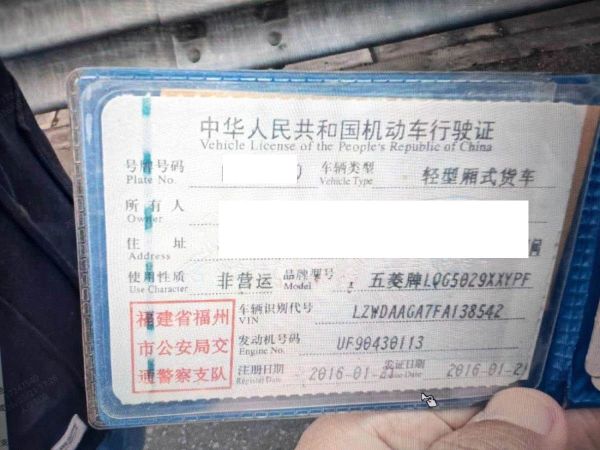 中华人民共和国机动车行驶证
Vehicle License of the People's Republic of China
号牌号码 车辆类型 轻型厢式货车
Plate No. Vehicle Type
所有人
Owner
住址
Address
使用性质 非营运 品牌型号 五菱牌LQG5029XXYPF
Use Character Model
福建省福州 车辆识别代号 LZWDAAGA7FA138542
VIN
市公安局交 发动机号码 UF90430113
Engine No.
通警察支队 注册日期 2016-01-21 发证日期 2016-01-21
Register Date Issue Date